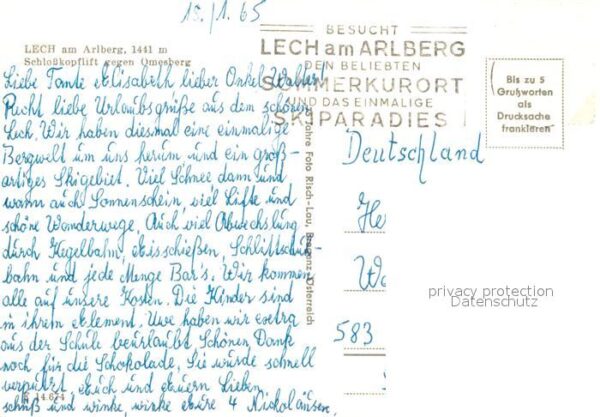 15./1. 65
BESUCHT
LECH am ARLBERG
DEN BELIEBTEN
SOMMERKURORT
UND DAS EINMALIGE
SKIPARADIES
LECH am Arlberg, 1441 m
Schloßkopflift gegen Omesberg
Bis zu 5
Grußworten
als
Drucksache
frankieren
Liebe Tante Elisabeth lieber Onkel Walter!
Recht liebe Urlaubsgrüße aus dem schönen
Lech. Wir haben diesmal eine einmalige
Bergwelt um uns herum, und ein groß-
artiges Skigebiet. Viel Schnee dann und
wann auch Sonnenschein, viel Lifte und
schöne Wanderwege, Auch viel Abwechslung
durch Kegelbahn, Eisschießen, Schlittschuh-
bahn und jede Menge Bar's. Wir kommen
alle auf unsere Kosten. Die Kinder sind
in ihrem Element. Uwe haben wir extra
aus der Schule beurlaubt Schönen Dank
noch für die Schokolade, Sie wurde schnell
verputzt. Euch und Euern Lieben
schuß und winke, winke Eure 4 Nickolausen,
Foto Risch-Lau, Bregenz, Österreich
14.674
Deutschland
583
privacy protection
Datenschutz